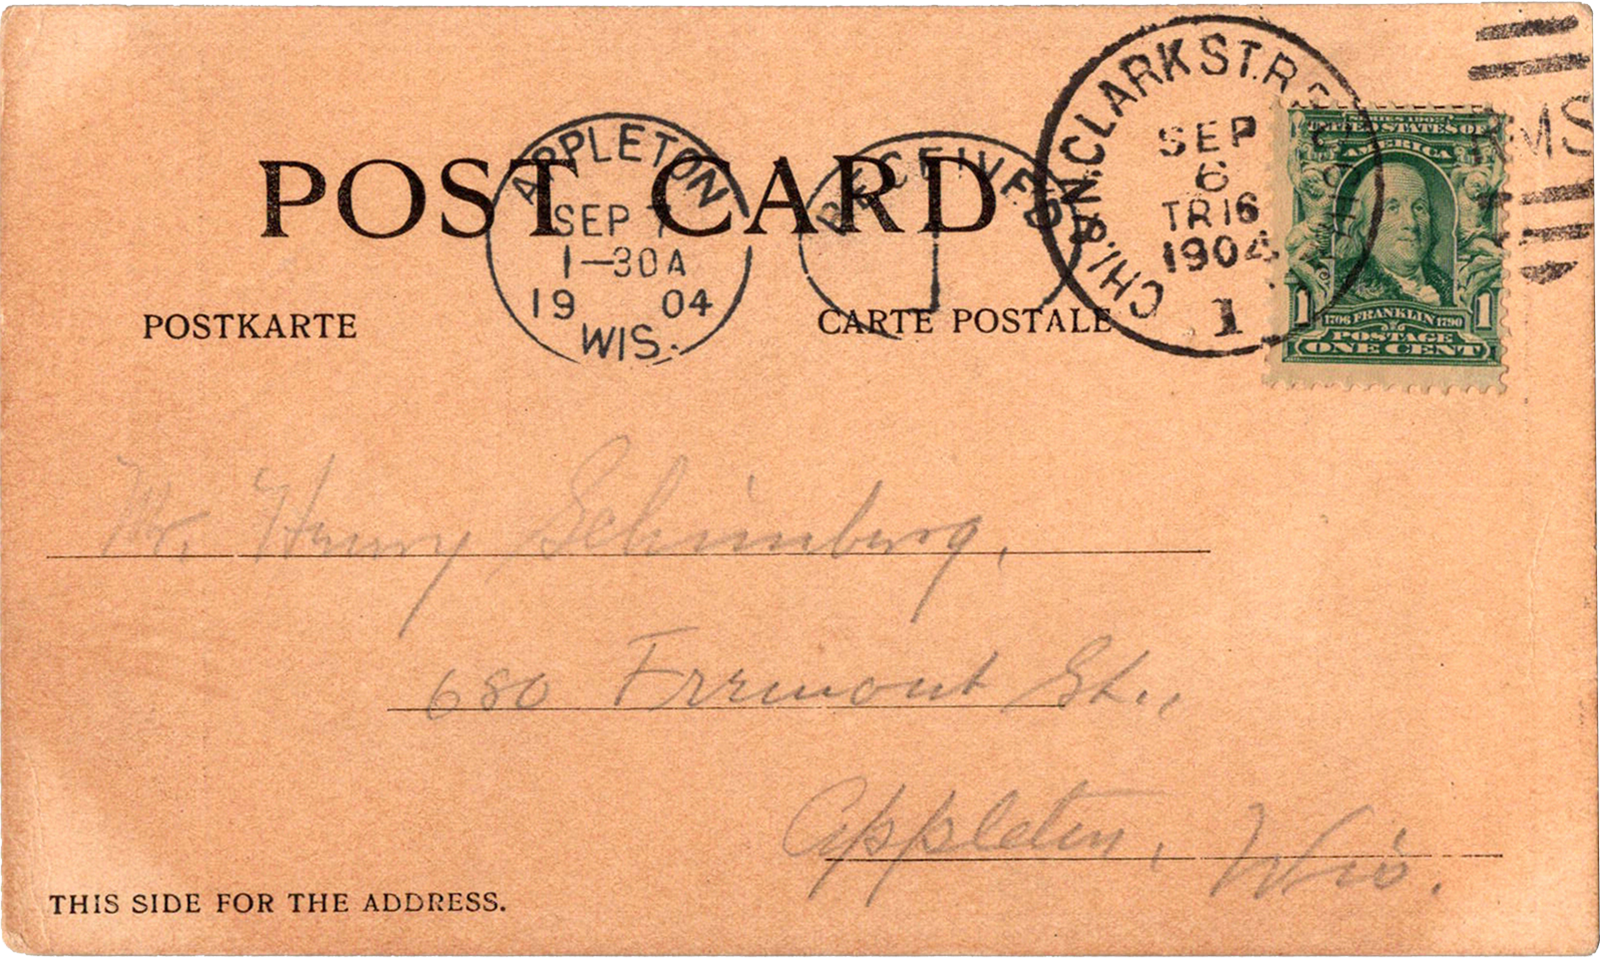 POST CARD
POSTKARTE
CARTE POSTALE
APPLETON
SEP 7
1-30A
19 04
WIS.
RECEIVED
1
CHI. & N. CLARK ST. R.P.O.
SEP
6
TR 16
1904
1
RMS
SERIES 1902
UNITED STATES OF
AMERICA
1 1
1706 FRANKLIN 1790
POSTAGE
ONE CENT
Mr. Henry Schimberg,
680 Fremont St.,
Appleton, Wis.
THIS SIDE FOR THE ADDRESS.